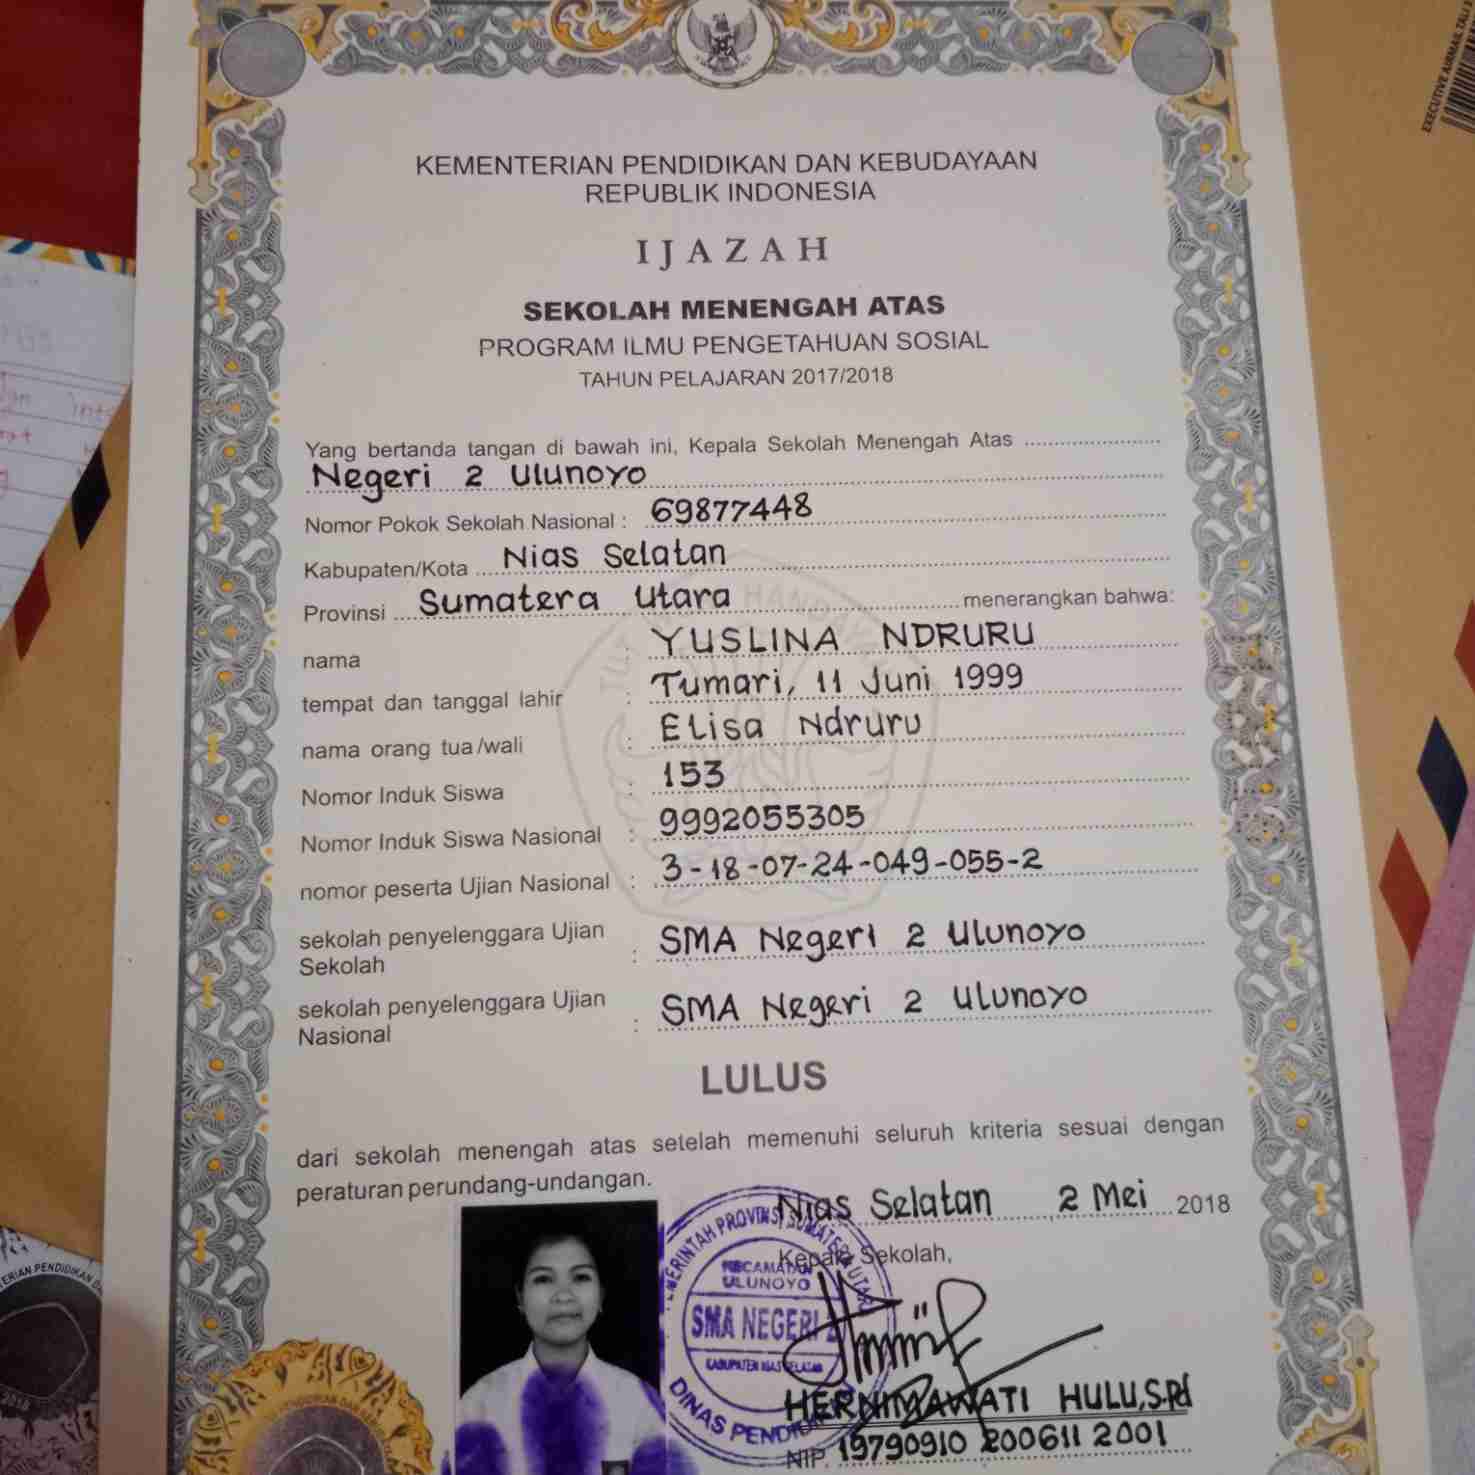 KEMENTERIAN PENDIDIKAN DAN KEBUDAYAAN
REPUBLIK INDONESIA
IJAZAH
SEKOLAH MENENGAH ATAS
PROGRAM ILMU PENGETAHUAN SOSIAL
TAHUN PELAJARAN 2017/2018
Yang bertanda tangan di bawah ini, Kepala Sekolah Menengah Atas
Negeri 2 Ulunoyo
Nomor Pokok Sekolah Nasional : 69877448
Kabupaten/Kota Nias Selatan
Provinsi Sumatera Utara menerangkan bahwa:
nama : YUSLINA NDRURU
tempat dan tanggal lahir : Tumari, 11 Juni 1999
nama orang tua/wali : Elisa Ndruru
Nomor Induk Siswa : 153
Nomor Induk Siswa Nasional : 9992055305
nomor peserta Ujian Nasional : 3-18-07-24-049-055-2
sekolah penyelenggara Ujian
Sekolah : SMA Negeri 2 Ulunoyo
sekolah penyelenggara Ujian
Nasional : SMA Negeri 2 Ulunoyo
LULUS
dari sekolah menengah atas setelah memenuhi seluruh kriteria sesuai dengan
peraturan perundang-undangan.
Nias Selatan, 2 Mei 2018
Kepala Sekolah,
KECAMATAN
ULUNOYO
SMA NEGERI 2
KABUPATEN NIAS SELATAN
HERNIMAWATI HULU, S.Pd
NIP. 19790910 200611 2001
EXECUTIVE AIRMAIL